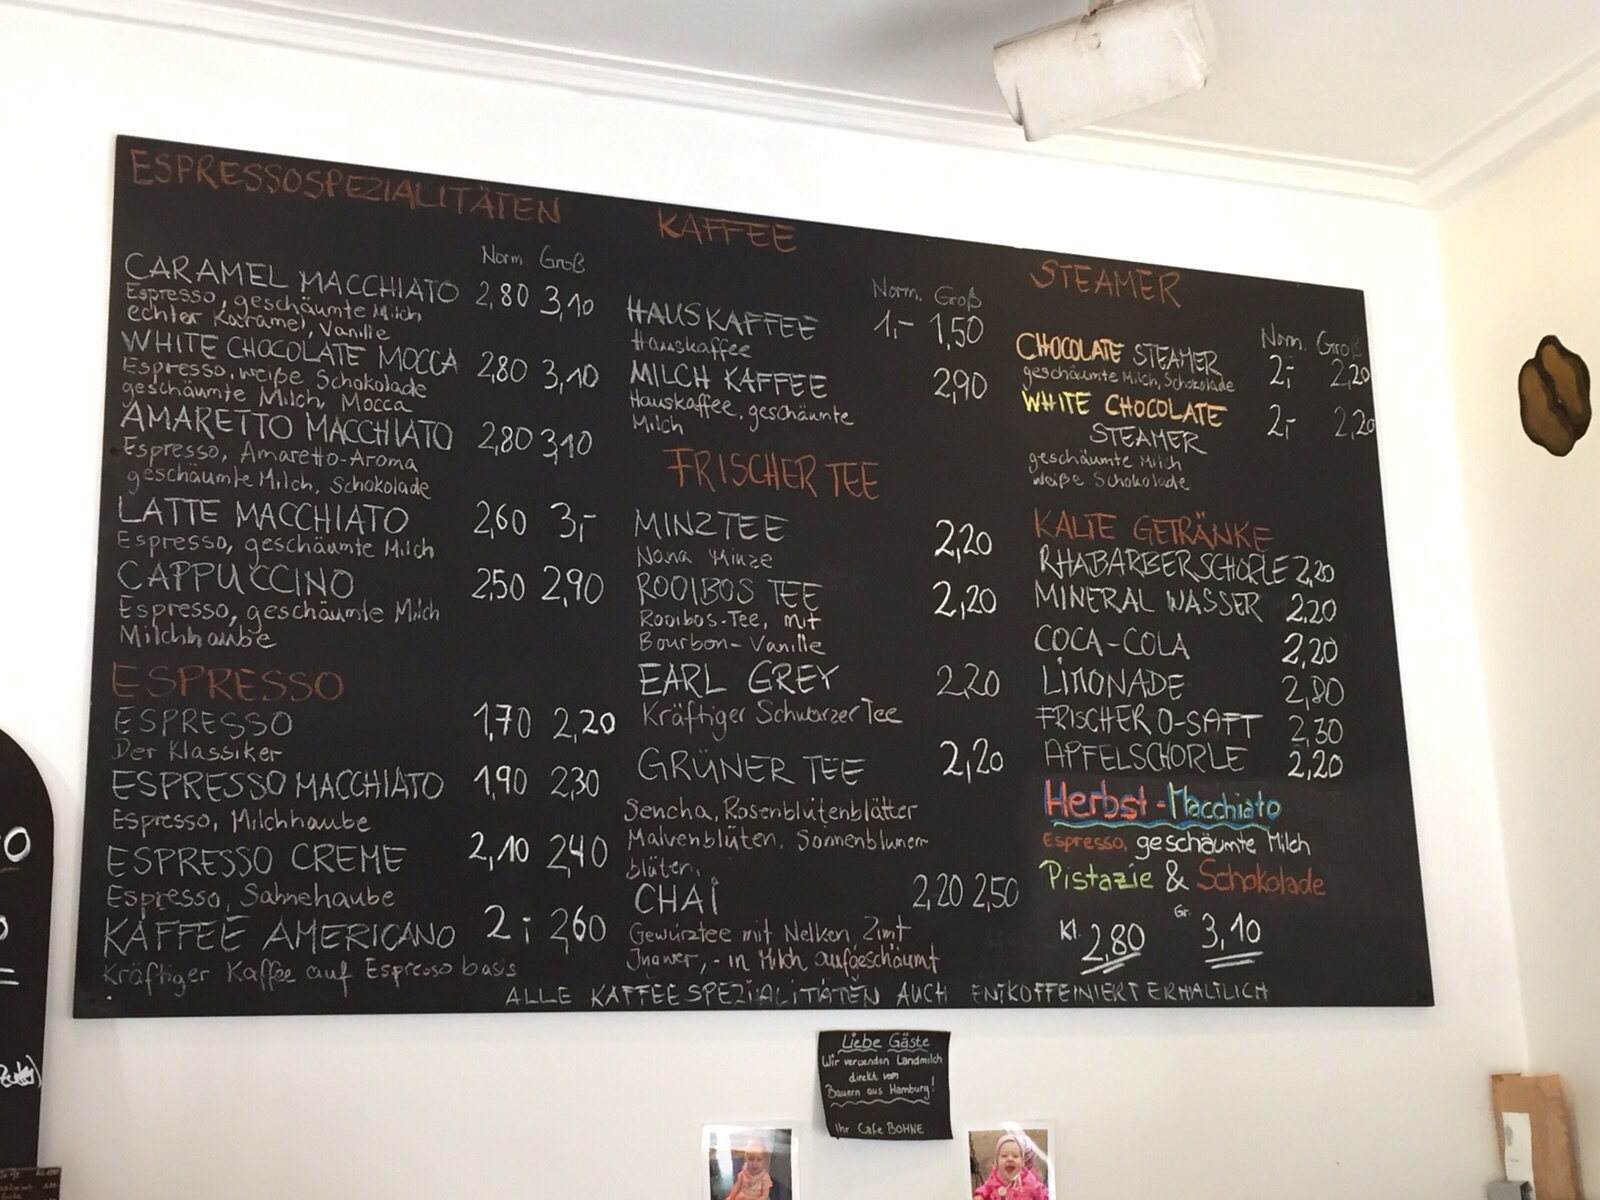 ESPRESSOSPEZIALITÄTEN
Norm. Groß
CARAMEL MACCHIATO 2,80 3,10
Espresso, geschäumte Milch
echter Karamel, Vanille
WHITE CHOCOLATE MOCCA 2,80 3,10
Espresso, weiße Schokolade
geschäumte Milch, Mocca
AMARETTO MACCHIATO 2,80 3,10
Espresso, Amaretto-Aroma
geschäumte Milch, Schokolade
LATTE MACCHIATO 2,60 3,-
Espresso, geschäumte Milch
CAPPUCCINO 2,50 2,90
Espresso, geschäumte Milch
Milchhaube
ESPRESSO
ESPRESSO 1,70 2,20
Der Klassiker
ESPRESSO MACCHIATO 1,90 2,30
Espresso, Milchhaube
ESPRESSO CREME 2,10 2,40
Espresso, Sahnehaube
KAFFEE AMERICANO 2,- 2,60
Kräftiger Kaffee auf Espresso basis
KAFFEE
Norm. Groß
HAUSKAFFEE 1,- 1,50
Hauskaffee
MILCH KAFFEE 2,90
Hauskaffee, geschäumte
Milch
FRISCHER TEE
MINZTEE 2,20
Nana Minze
ROOIBOS TEE 2,20
Rooibos-Tee, mit
Bourbon-Vanille
EARL GREY 2,20
Kräftiger Schwarzer Tee
GRÜNER TEE 2,20
Sencha, Rosenblütenblätter
Malvenblüten, Sonnenblumen-
blüten.
CHAI 2,20 2,50
Gewürztee mit Nelken, Zimt
Ingwer, - in Milch aufgeschäumt
STEAMER
Norm. Groß
CHOCOLATE STEAMER 2,- 2,20
geschäumte Milch, Schokolade
WHITE CHOCOLATE 2,- 2,20
STEAMER
geschäumte Milch
weiße Schokolade
KALTE GETRÄNKE
RHABARBERSCHORLE 2,20
MINERAL WASSER 2,20
COCA-COLA 2,20
LIMONADE 2,80
FRISCHER O-SAFT 2,30
APFELSCHORLE 2,20
Herbst-Macchiato
Espresso, geschäumte Milch
Pistazie & Schokolade
Kl. 2,80 Gr. 3,10
ALLE KAFFEESPEZIALITÄTEN AUCH ENTKOFFEINIERT ERHÄLTLICH
Liebe Gäste
Wir verwenden Landmilch
direkt vom
Bauern aus Hamburg!
Ihr Cafe BOHNE